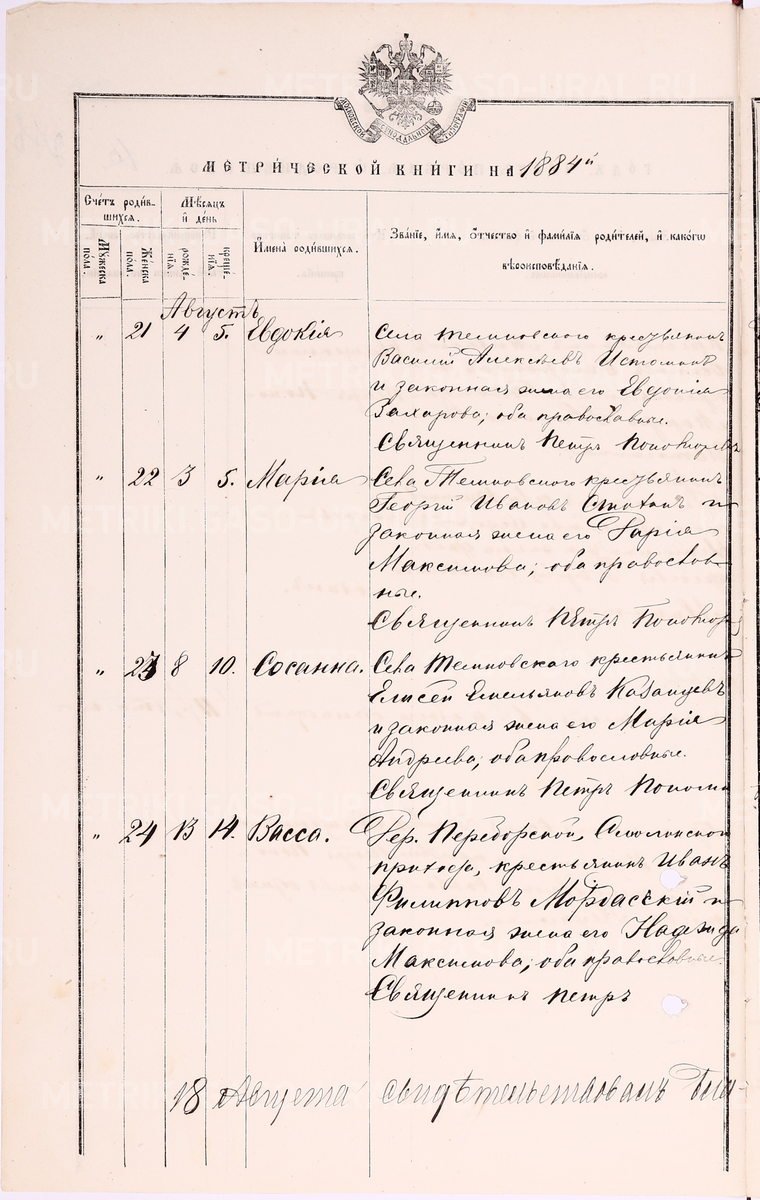 МОСКОВСКОЙ СѴНОДАЛЬНОЙ ТИПОГРАФІИ
МЕТРИЧЕСКОЙ КНИГИ НА 1884й
Счетъ родив- Мѣсяцъ
шихся. и день
Имена родившихся. Званіе, имя, отчество и фамилія родителей, и какогѡ
вѣроисповѣданія.
Мужеска пола. Женска пола. рожденія. крещенія.
Августъ
" 21 4 5. Евдокія Села Темновского крестьянинъ
Василій Алексѣевъ Истоминъ
и законная жена его Евдокія
Захарова; оба православные.
Священникъ Петръ
" 22 3 5. Марія Села Темновского крестьянинъ
Георгій Ивановъ и
законная жена его Марія
Максимова; оба православ-
ные.
Священникъ Петръ
" 23 8 10. Сосанна. Села Темновскаго крестьянинъ
Елисей Емельяновъ Казанцевъ
и законная жена его Марія
Андреева; оба провословные.
Священникъ Петръ
" 24 13 14. Васса. Дер. Переборской, Смолинской
прихода, крестьянинъ Иванъ
Филипповъ и
законная жена его Надежда
Максимова; оба православные.
Священникъ Петръ
18 Августа свидѣтельствовалъ Бла-